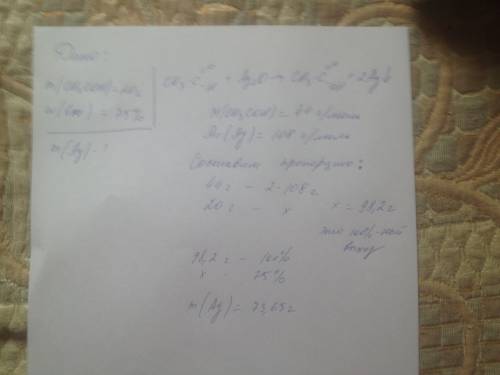 Дано:
m(CH₃COH) = 20г
W(вых) = 75%
m(Ag) - ?
CH₃-C=O-H + Ag₂O → CH₃-C=O-OH + 2Ag↓
M(CH₃COH) = г/моль
Ar(Ag) = 108 г/моль
Составим пропорцию:
г - 2·108г
20г - x x = 98,2г
это 100%-ный
выход
98,2г - 100%
x - 75%
m(Ag) = 73,65г